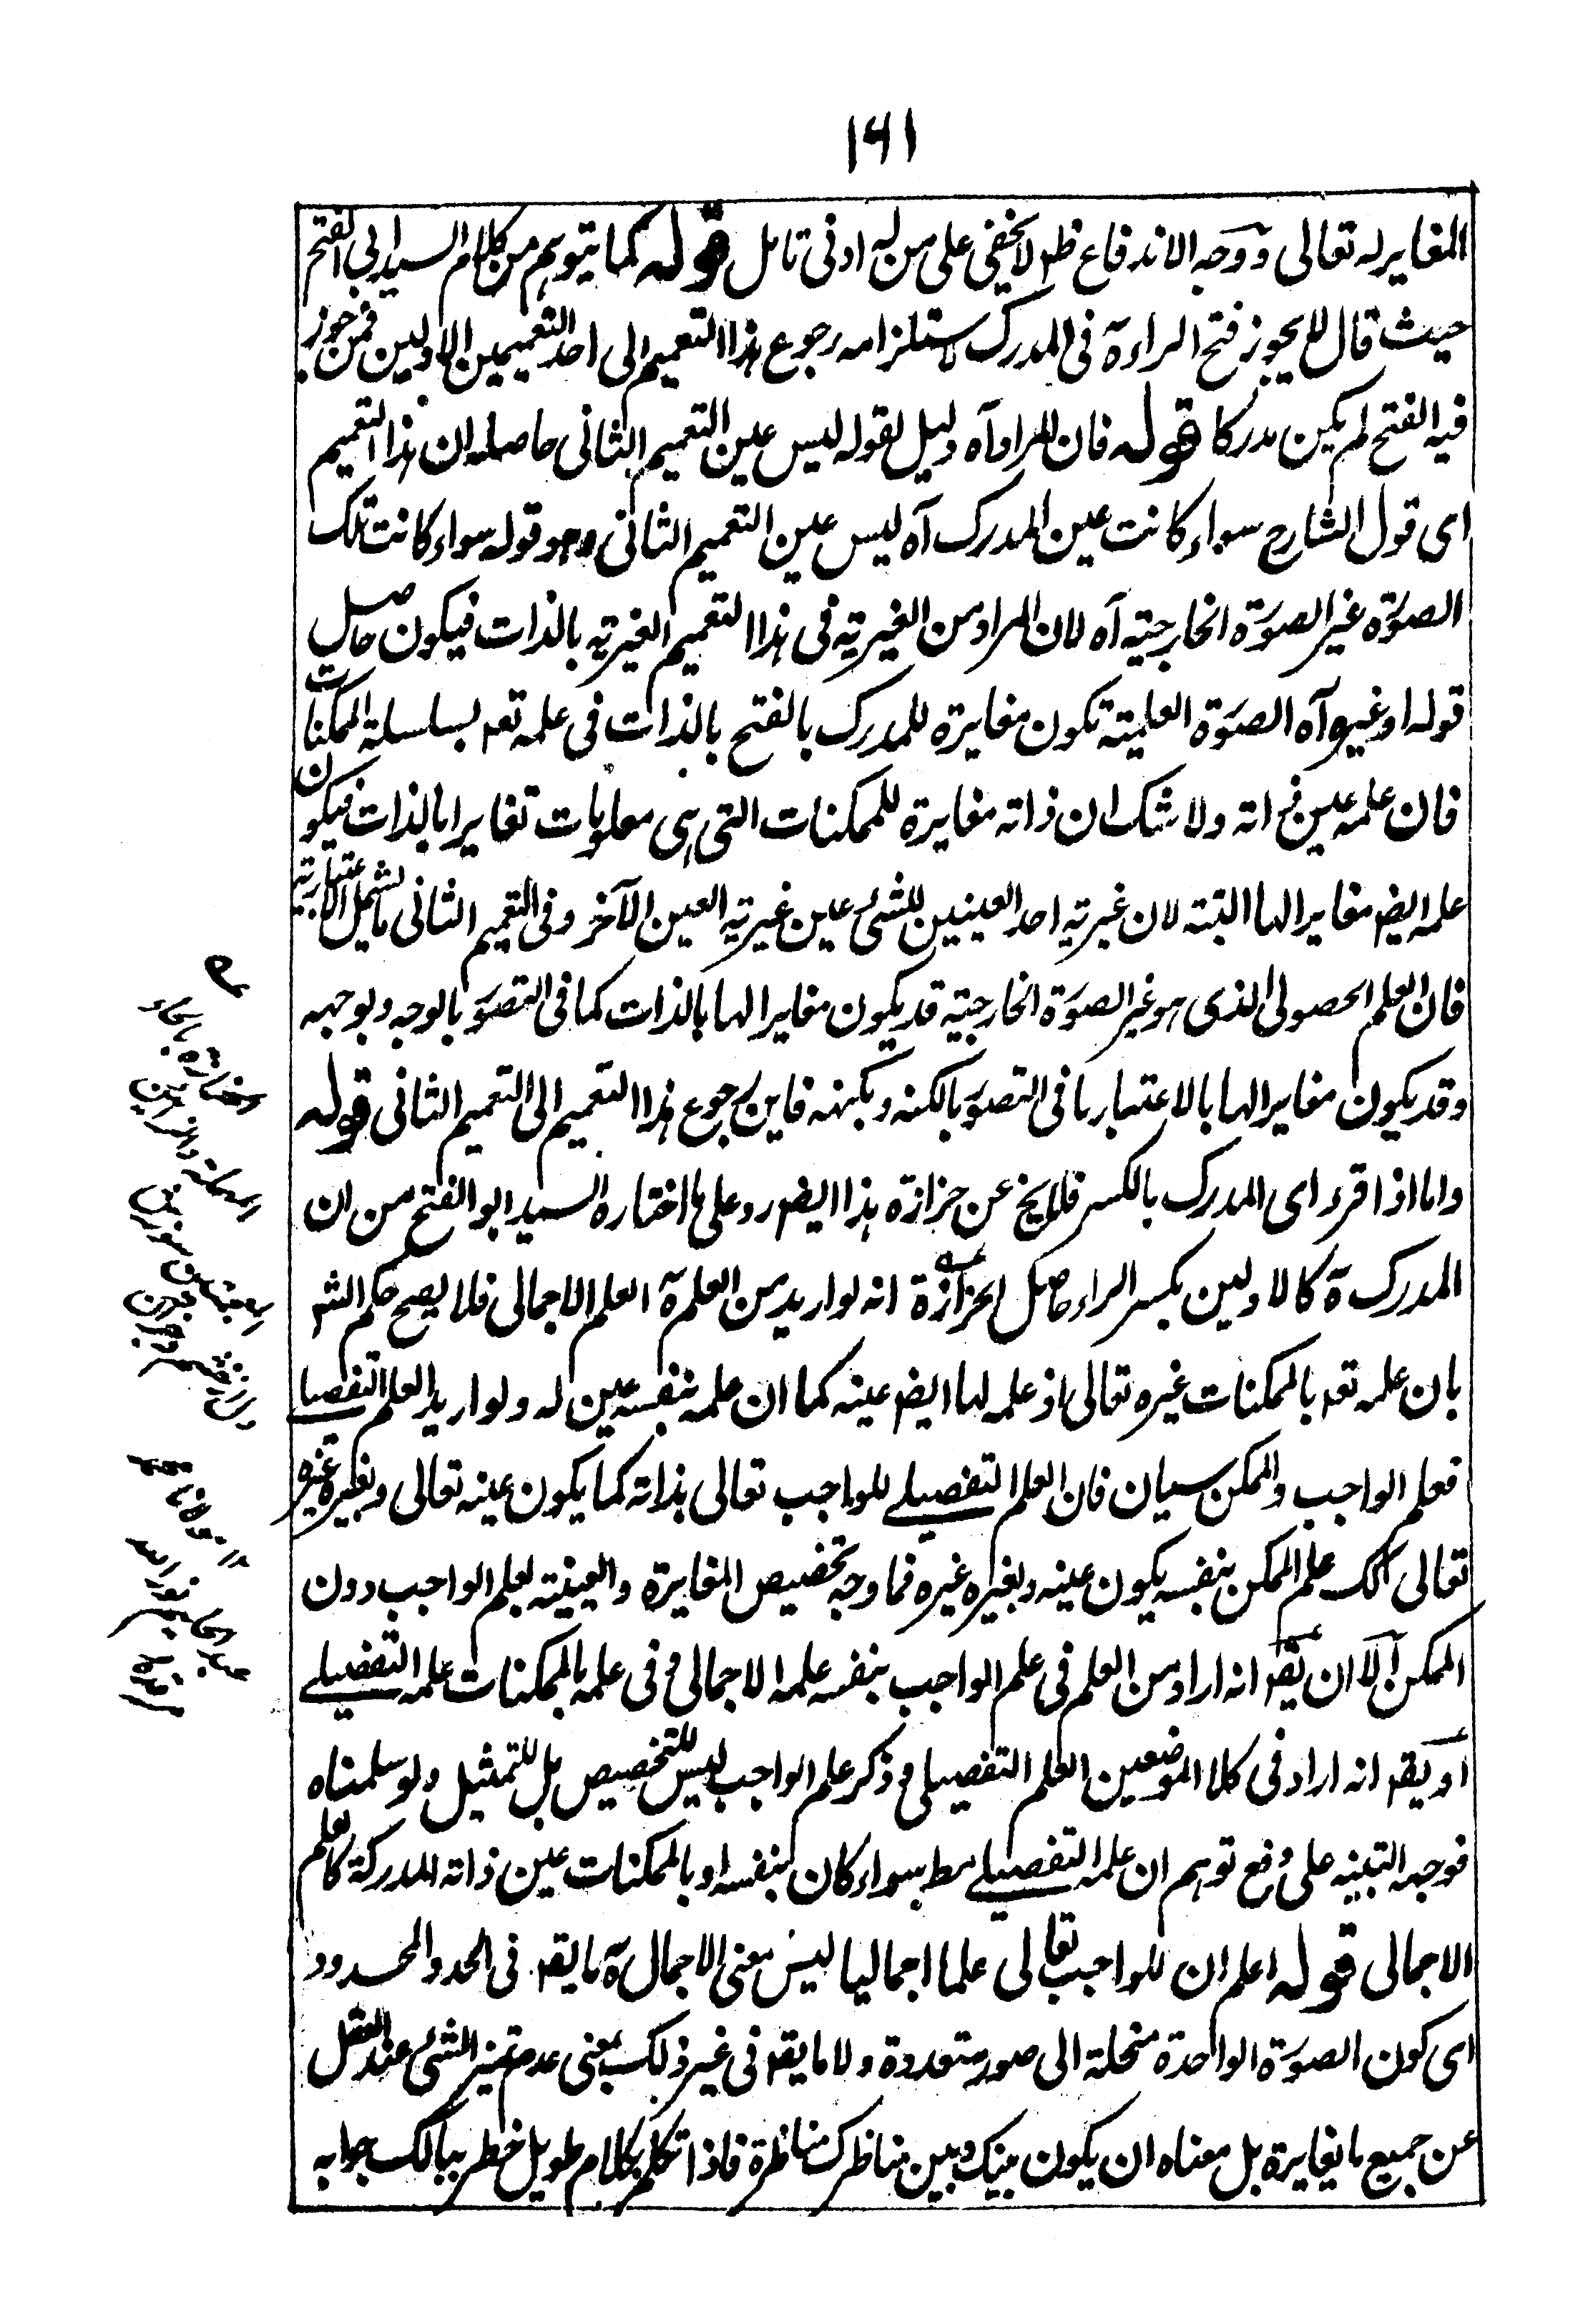 ١٦١
المغاير له تعالى ووجه الاندفاع ظہ لا يخفى على من له ادنى تامل قوله كما يتوہم من كلام السيد ابى الفتح
حيث قال لا يجوز فتح الراء ة فى المدرك لاستلزامه رجوع ہذا التعميم الى احد التعميمين الاولين فمن جوز
فيه الفتح لم يكن مدركا قوله فان المراد آه دليل لقوله ليس عين التعميم الثانى حاصله ان ہذا التعميم
اى قول الشارح سواء كانت عين المدرك آه ليس عين التعميم الثانى وہو قوله سواء كانت تلك
الصورة غير الصورة الخارجية آه لان المراد من الغيرية فى ہذا التعميم الغيرية بالذات فيكون حاصل
قوله او غيره آه الصورة العلمية تكون مغايرة للمدرك بالفتح بالذات فى علمه تعہ لسلسلة الممكنات
فان علمه عين ذاته ولا شك ان ذاته مغايرة للممكنات التى ہى معلومات تغايرا بالذات فيكون
علمه ايضہ مغايرا لها البتة لان غيرية احد العينين للشئ عين غيرية العين الآخر وفى التعميم الثانى ما يشمل الاعتبارية
فان العلم الحصولى الذى ہو غير الصورة الخارجية قد يكون مغايرا لها بالذات كما فى التصور بالوجه وبوجهه
وقد يكون مغايرا لها بالاعتبار كما فى التصور بالكنه وبكنهه فاين رجوع ہذا التعميم الى التعميم الثانى قوله
واما اذا قرء اى المدرك بالكسر فلا يخ عن حزازة ہذا ايضہ رد على ما اختاره السيد ابو الفتح من ان
المدرك ة كالاولين بكسر الراء حاصل الحزازة انه لو اريد من العلم ة العلم الاجمالى فلا يصح حكم الشہ
بان علمه تعہ بالممكنات غيره تعالى اذ علمه لها ايضہ عينه كما ان علمه بنفسه عين له ولو اريد العلم التفصيلى
فعلم الواجب والممكن سيان فان العلم التفصيلے للواجب تعالى بذاته كما يكون عينه تعالى وبغيره غيره
تعالى كك علم الممكن بنفسه يكون عينه وبغيره غيره فما وجه تخصيص المغايرة والعينية بعلم الواجب دون
الممكن الا ان يقہ انه اراد من العلم فى علم الواجب بنفسه علمه الاجمالى وفى علمه بالممكنات علمه التفصيلے
او يقہ انه اراد فى كلا الموضعين العلم التفصيلى وذكر علم الواجب ليس للتخصيص بل للتمثيل ولو سلمناه
فوجهه التنبيه على دفع توہم ان علمه التفصيلے مط سواء كان بنفسه او بالممكنات عين ذاته المدركة كالعلم
الاجمالى قوله اعلم ان للواجب تعالى علما اجماليا ليس معنى الاجمال ة ما يقہ فى الحد والمحدود
اى كون الصورة الواحدة منحلة الى صور متعددة ولا ما يقہ فى غير ذلك بمعنى عدم تميز الشئ عند العقل
عن جميع ما يغايره بل معناه ان يكون بينك وبين مناظرك مناظرة فاذا تكلم بكلام طويل خطر ببالك جوابه